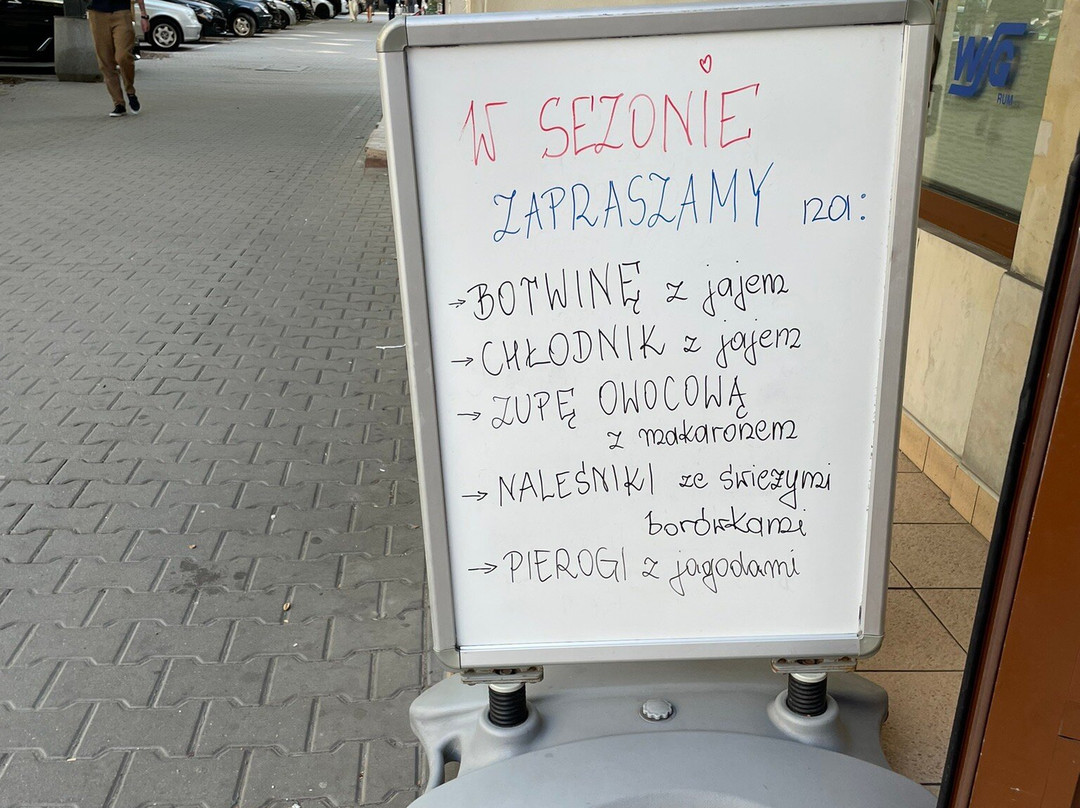 W SEZONIE
ZAPRASZAMY na:
→ BOTWINĘ z jajem
→ CHŁODNIK z jajem
→ ZUPĘ OWOCOWĄ
z makaronem
→ NALEŚNIKI ze świeżymi
borówkami
→ PIEROGI z jagodami
RUM